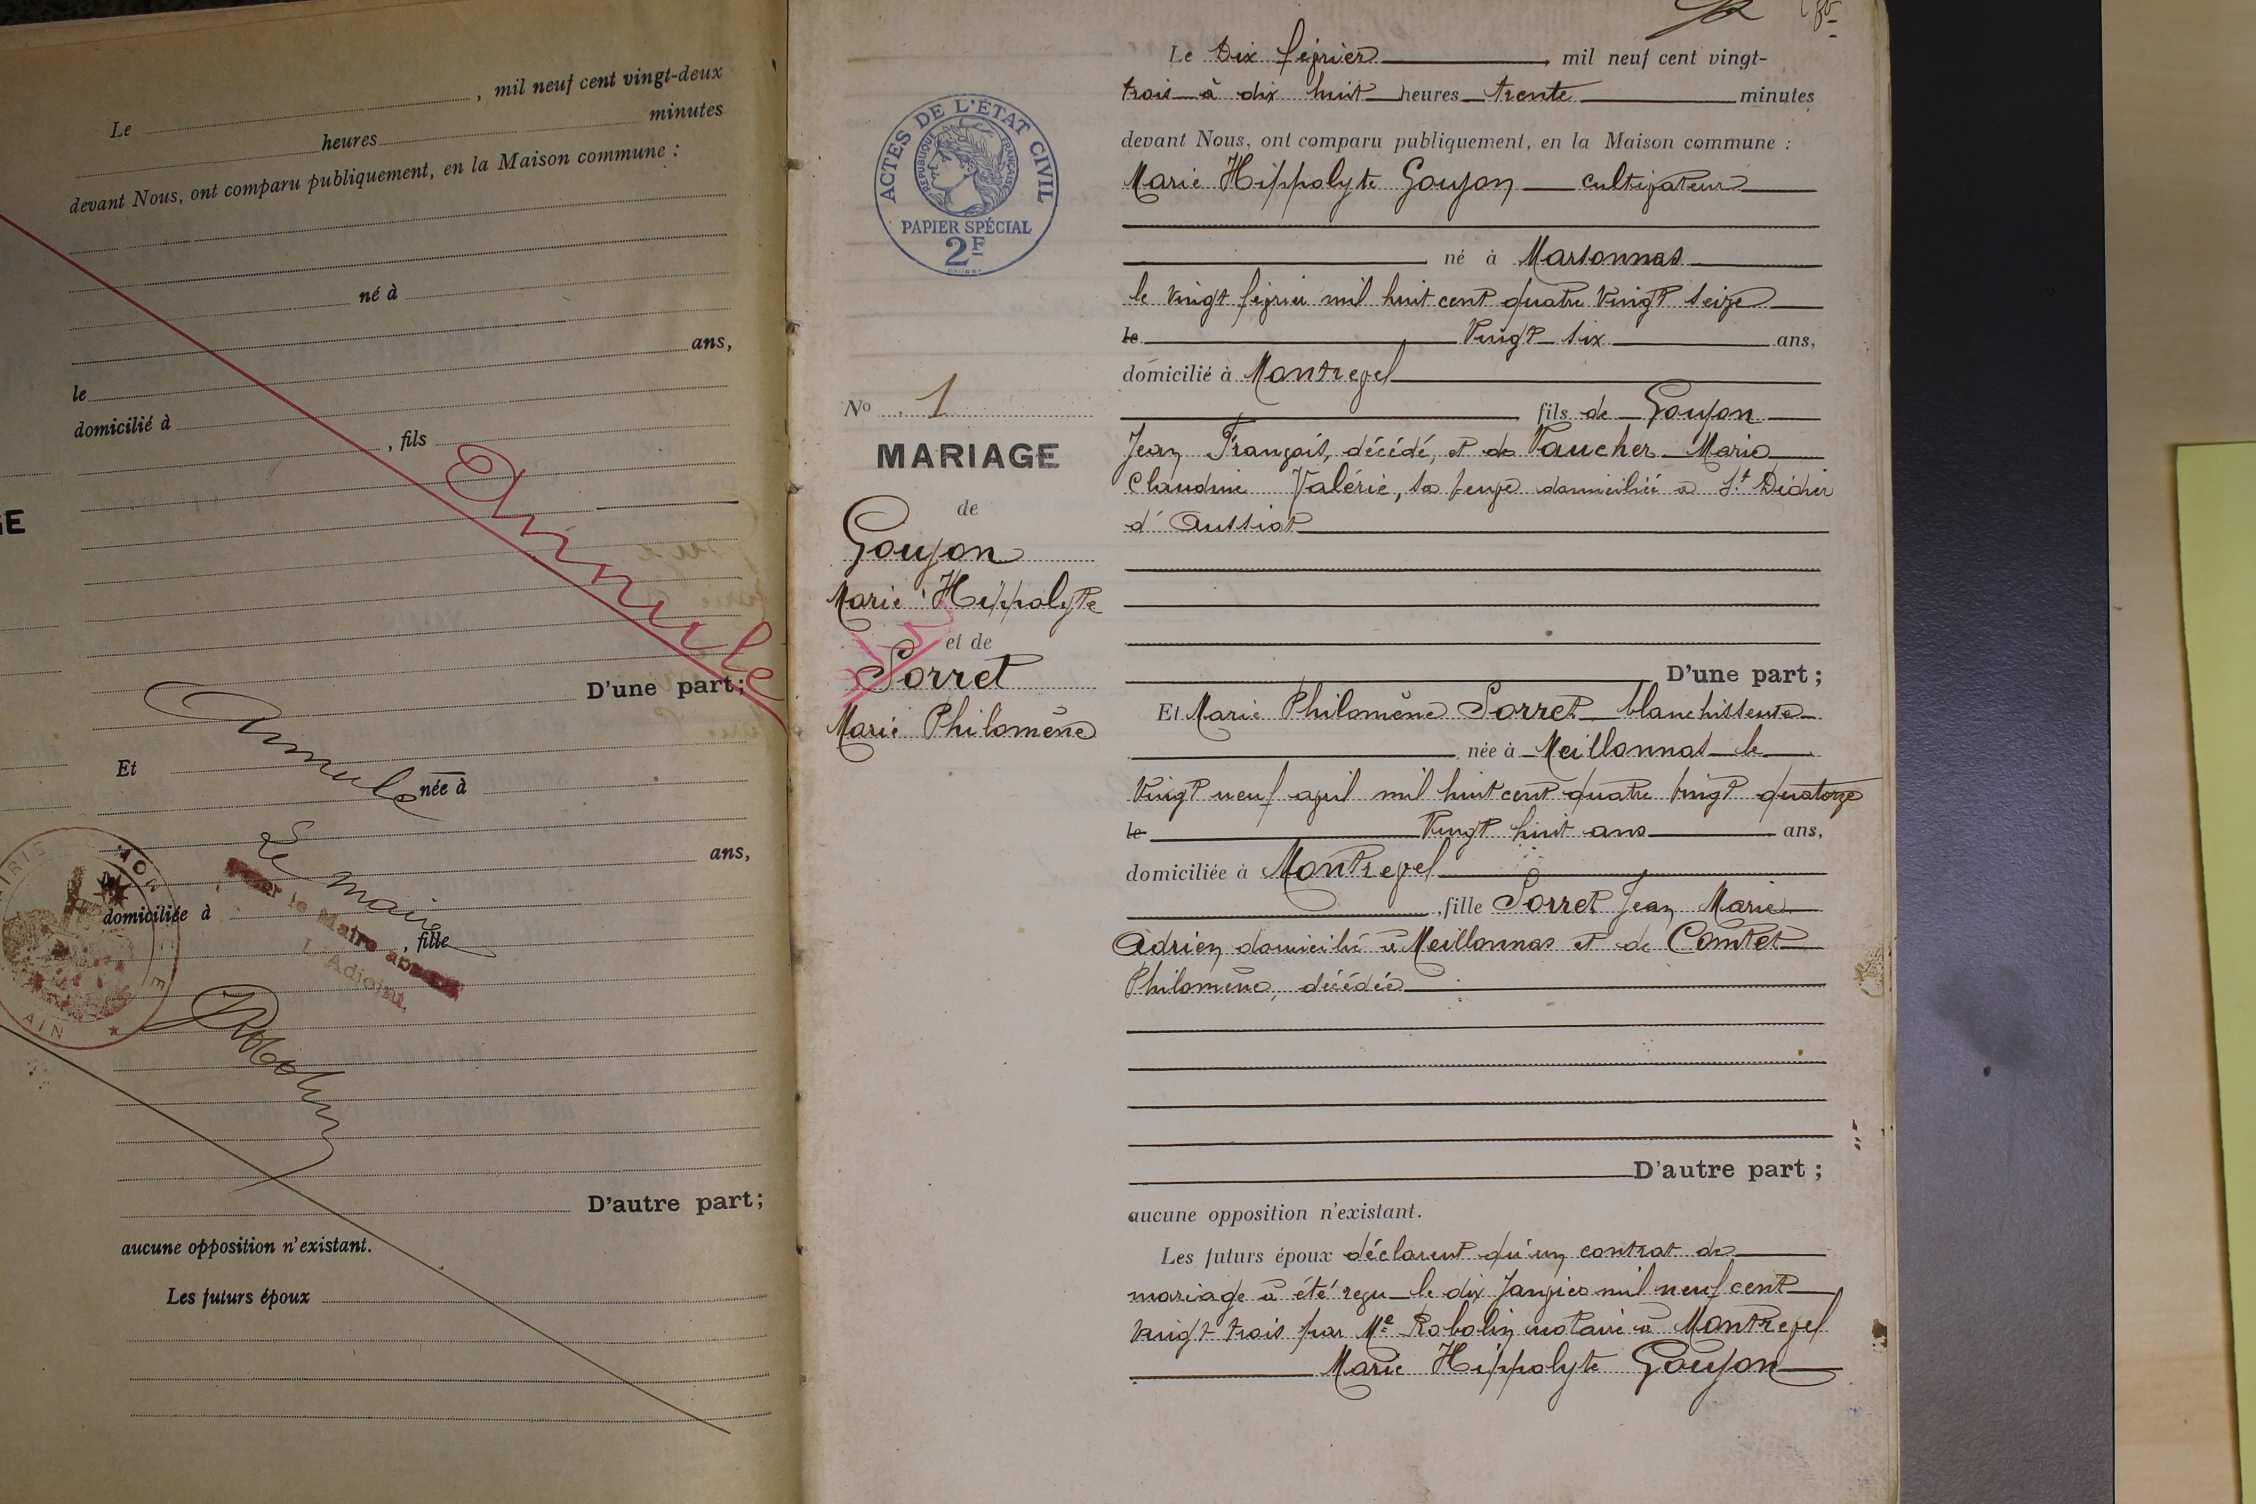 Le , mil neuf cent vingt-deux
heures minutes
devant Nous, ont comparu publiquement, en la Maison commune :
né à
le ans,
domicilié à
, fils
Annulé
D'une part;
Annulé
Et née à
Le maire
ans,
domiciliée à
, fille
le Maire absent
L'Adjoint,
AIN
D'autre part;
aucune opposition n'existant.
Les futurs époux
GE
ACTES DE L'ÉTAT CIVIL
RÉPUBLIQUE FRANÇAISE
PAPIER SPÉCIAL
2F
No 1
MARIAGE
de
Goujon
Marie Hippolyte
et de
Sorret
Marie Philomène
Le Dix février , mil neuf cent vingt-
trois à dix huit heures trente minutes
devant Nous, ont comparu publiquement, en la Maison commune :
Marie Hippolyte Goujon cultivateur
né à Marsonnas
le vingt février mil huit cent quatre vingt seize
le vingt six ans,
domicilié à Montrevel
fils de Goujon
Jean François, décédé, et de Vaucher Marie
Claudine Valérie, sa veuve domiciliée à St Didier
d'Aussiat
D'une part ;
Et Marie Philomène Sorret blanchisseuse
née à Meillonnas le
vingt neuf avril mil huit cent quatre vingt quatorze
le vingt huit ans ans,
domiciliée à Montrevel
, fille Sorret Jean Marie
Adrien domicilié à Meillonnas et de Comtet
Philomène, décédée
D'autre part ;
aucune opposition n'existant.
Les futurs époux déclarent qu'un contrat de
mariage a été reçu le dix Janvier mil neuf cent
vingt trois par Me Robolin notaire à Montrevel
Marie Hippolyte Goujon